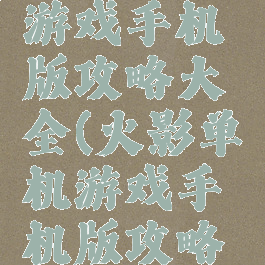 游戏手机
版攻略大
全(火影单
机游戏手
机版攻略